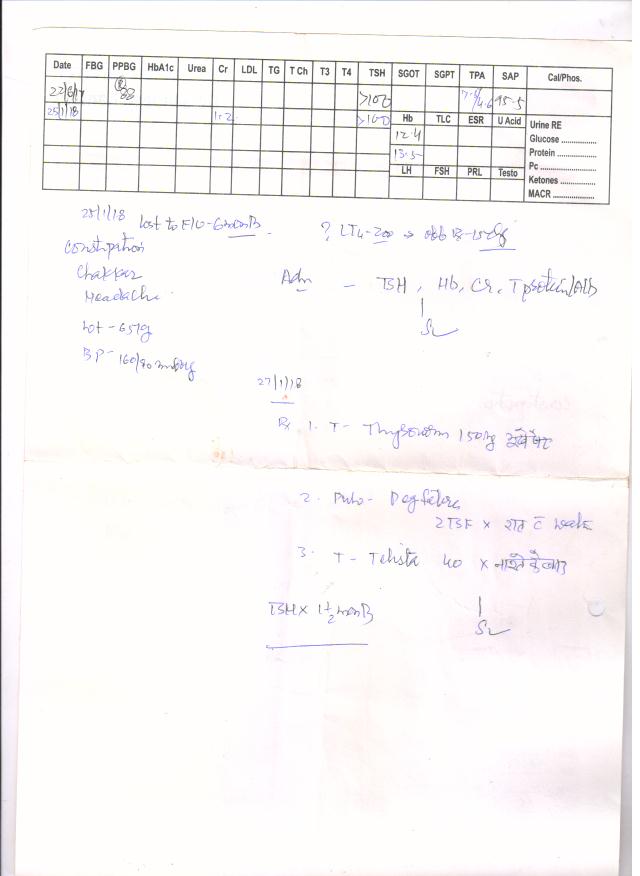 Date FBG PPBG HbA1c Urea Cr LDL TG T Ch T3 T4 TSH SGOT SGPT TPA SAP Cal/Phos.
22/6/17 88 >100
25/1/18 1.2 >100 Hb TLC ESR U Acid Urine RE
12.4 Glucose ..............
13.5 Protein ..............
LH FSH PRL Testo Pc ..............
Ketones ..............
MACR ..............
25/1/18 lost to F/U - 6 month
Constipation
Chakker
Headache
Wt - 65 kg
BP - 160/90 mmHg
Adv - TSH, Hb, Cr, T protein/Alb
27/1/18
Rx 1. T - Thyronorm 150 µg
2. Pulv -
2 TSF x रात c water
3. T - Telista 40 x नाश्ते के बाद
TSH x 1 1/2 month